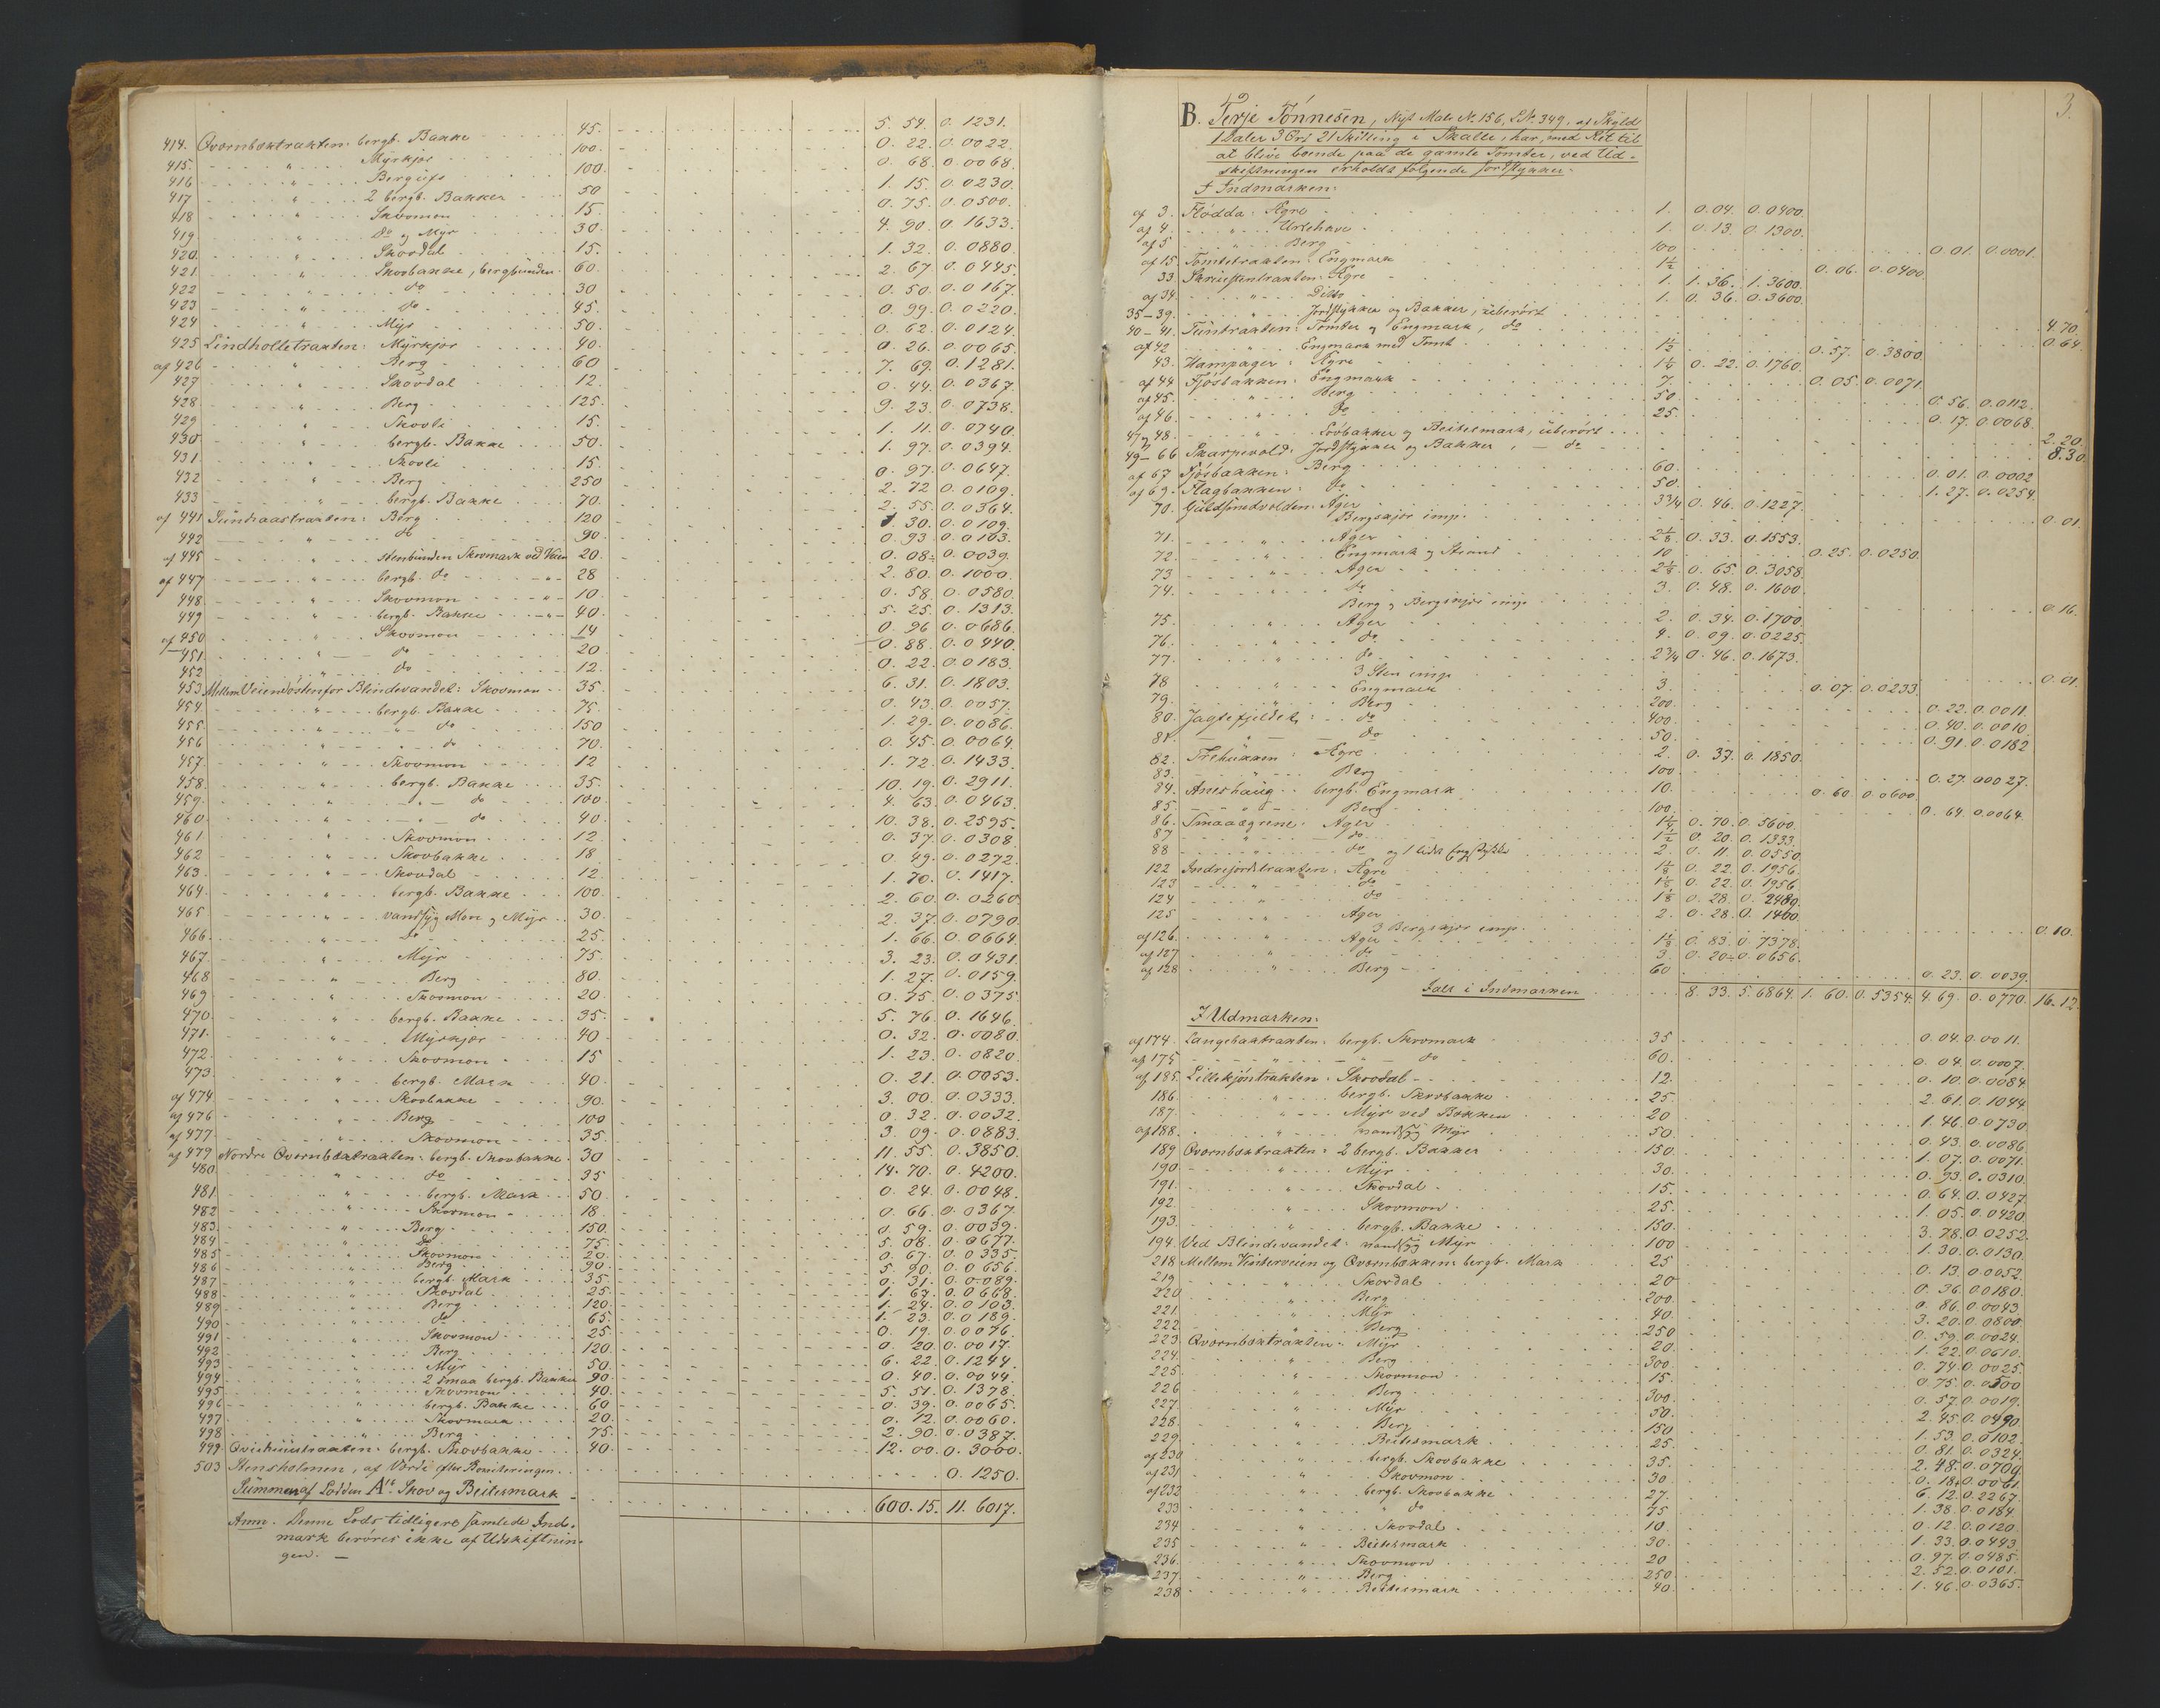 414. Qvornboktrakten: bergb. Bakke 45. 5. 54. 0. 1231.
415. " Myrkjær 100. 0. 22. 0. 0022.
416 " Bergufs 100. 0. 68. 0. 0068.
417 " 2 bergb. Bakker 50 1. 15. 0. 0230.
418 " Skovmon 15. 0. 75. 0. 0500.
419. " do og Myr 30. 4. 90. 0. 1633.
420. " Skovdal 15. 1. 32. 0. 0880.
421 " Skovbakke, bergbunden. 60. 2. 67. 0. 0445.
422 " do 30 0. 50. 0. 0167.
423 " do 45. 0. 99. 0. 0220.
424 " Myr 50. 0. 62. 0. 0124.
425 Lindholletrakten: Myrkjær 40. 0. 26. 0. 0065.
af 426 " Berg 60 7. 69. 0. 1281.
427 " Skovdal 12. 0. 44. 0. 0367.
428 " Berg 125. 9. 23. 0. 0738.
429 " Skovli 15. 1. 11. 0. 0740.
430 " bergb. Bakke 50. 1. 97. 0. 0394.
431. " Skovli 15. 0. 97. 0. 0647.
432 " Berg 250 2. 72 0. 0109.
433 " bergb. Bakke 70. 2. 55. 0. 0364.
af 441 Sundraastrakten: Berg 120 1. 30. 0. 0109.
442 " do 90. 0. 93 0. 0103.
af 445 " stenbunden Skovmark ved Veien 20. 0. 08. 0. 0039.
af 447 " bergb. do " 28 2. 80. 0. 1000.
448 " Skovmon " 10. 0. 58. 0. 0580.
449 " bergb. Bakke " 40. 5. 25. 0. 1313.
af 450 " Skovmon 14 0. 96 0. 0686.
451. " do 20 0. 88. 0. 0440.
452 " do 12. 0. 22. 0. 0183.
453 Mellem Veien østenfor Blindevandet: Skovmon 35. 6. 31. 0. 1803.
454 " bergb. Bakke 75. 0. 43. 0. 0057.
455. " do 150 1. 29. 0. 0086.
456 " do 70. 0. 45. 0. 0064.
457 " Skovmon 12 1. 72. 0. 1433.
458 " bergb. Bakke 35. 10. 19. 0. 2911.
459. " do 100. 4. 63. 0. 0463.
460 " do 40. 10. 38. 0. 2595.
461 " Skovmon 12 0. 37. 0. 0308.
462 " Skovbakke 18 0. 49. 0. 0272.
463 " Skovdal 12. 1. 70. 0. 1417.
464 " bergb. Bakke 100. 2. 60. 0. 0260.
465 " vandsyg Mon og Myr 30. 2. 37. 0. 0790.
466 " do 25. 1. 66. 0. 0664.
467. " Myr 75. 3. 23. 0. 0431.
468 " Berg 80. 1. 27. 0. 0159.
469 " Skovmon 20. 0. 75. 0. 0375.
470. " bergb. Bakke 35. 5. 76. 0. 1646.
471. " Myrkjær 40 0. 32. 0. 0080.
472. " Skovmon 15 1. 23. 0. 0820.
473. " bergb. Mark 40. 0. 21. 0. 0053.
af 474 " Skovbakke 90. 3. 00. 0. 0333.
af 476 " Berg 100 0. 32. 0. 0032.
af 477 " Skovmon 35. 3. 09. 0. 0883.
af 479 Nordre Qvornboktrakten: bergb. Skovbakke. 30 11. 55. 0. 3850.
480 " do 35 14. 70. 0. 4200.
481 " bergb. Mark 50. 0. 24. 0. 0048.
482 " Skovmon 18. 0. 66. 0. 0367.
483. " Berg 150. 0. 59. 0. 0039.
484 " do 75. 5. 08. 0. 0677.
485 " Skovmon 20. 0. 67. 0. 0335.
486 " Berg 90. 5. 90. 0. 0656.
487 " bergb. Mark 35 0. 31. 0. 0089.
488 " Skovdal 25. 1. 67. 0. 0668.
489 " Berg 120. 1. 24. 0. 0103.
490 " do 65. 1. 23. 0. 0189.
491 " Skovmon 25. 0. 19. 0. 0076.
492 " Berg 120. 0. 20. 0. 0017.
493 " Myr 50. 6. 22. 0. 1244.
494 " 2 smaa bergb. Bakker 90. 0. 40. 0. 0044.
495 " Skovmon 40. 5. 51. 0. 1378.
496 " bergb. Bakke 60 0. 39. 0. 0065.
497 " Skovmark 20. 0. 12. 0. 0060.
498 " Berg 75. 2. 90. 0. 0387.
499 bergb. Skovbakke 40. 12. 00. 0. 3000.
503 Stensholmen, af Værdi efter Boniteringen. 0. 1250.
Summen af Lodden A's Skov og Beitesmark 600. 15. 11. 6017.
Anm. Denne Lods tidligere samlede Ind-
mark berøres ikke af Udskiftnin-
gen. —
3.
B. Terje Tønnesen, Nyt Matr. No. 156, LN. 349, af Skyld
1 Daler 3 Ort 21 Skilling i Skalle, har, med Ret til
at blive boende paa de gamle Tomter, ved Ud-
skiftningen erholdt følgende Jordstykker.
I Indmarken:
af 3. Flødda: Agre 1. 0. 04. 0. 0400.
af 4. " Urlehave 1. 0. 13. 0. 1300.
af 5 " Berg 100 0. 01. 0. 0001.
af 15. Tomtetrakten: Engmark 1½ 0. 06. 0. 0400.
33. Skrivestentrakten: Agre 1. 1. 36. 1. 3600.
af 34. " Ditto 1. 0. 36. 0. 3600.
35–39. " Jordstykker og Bakker, uberørt 4. 70.
40–41. Tuntrakten: Tomter og Engmark, do 0. 64.
af 42 " Engmark med Tomt 1½ 0. 57. 0. 3800.
43. Hampager: Agre 1¼ 0. 22. 0. 1760.
af 44 Fjøsbakken: Engmark 7. 0. 05. 0. 0071.
af 45. " Berg 50. 0. 56. 0. 0112.
af 46. " do 25. 0. 17. 0. 0068.
47 og 48. " Løvbakker og Beitesmark, uberørt 2. 20.
49–66 Skarpevold: Jordstykker og Bakker, do 8. 30.
af 67 Fjøsbakken: Berg 60. 0. 01. 0. 0002
af 69. Flagbakken: do 50. 1. 27. 0. 0254.
70. Guldsmedvolden: Ager 3¾ 0. 46. 0. 1227.
Bergskjær imp. 0. 01.
71. " Ager 2⅛ 0. 33. 0. 1553.
72. " Engmark og Strand 10 0. 25. 0. 0250.
73 " Ager 2⅛ 0. 65. 0. 3058.
74. " do 3. 0. 48. 0. 1600.
Berg og Bergskjær imp. 0. 16.
75. " Ager 2. 0. 34. 0. 1700.
76. " do 4. 0. 09. 0. 0225.
77. " do 2¾ 0. 46. 0. 1673.
3 Sten imp. 0. 01.
78 " Engmark 3. 0. 07. 0. 0233.
79. " Berg 200. 0. 22. 0. 0011.
80. Jagtefjeldet: do 400. 0. 40. 0. 0010.
81. " do 50. 0. 91. 0. 0182
82. Agre 2. 0. 37. 0. 1850.
83. " Berg 100. 0. 27. 0. 0027.
84. Aneshaug: bergb. Engmark 10. 0. 60. 0. 0600.
85. " Berg 100. 0. 64. 0. 0064.
86. Smaaagrene: Ager 1¼ 0. 70. 0. 5600.
87 " do 1½ 0. 20. 0. 1333.
88 " do og 1 lidet Engstykke 2. 0. 11. 0. 0550.
122 Indrejordstrakten: Agre 1⅛ 0. 22. 0. 1956.
123 " do 1⅛ 0. 22. 0. 1956.
124 " do 1⅛ 0. 28. 0. 2489.
125 " Ager 2. 0. 28. 0. 1400.
3 Bergskjær imp. 0. 10.
af 126. " Ager 1⅛ 0. 83. 0. 7378.
af 127 " do 3. 0. 20. 0. 0656.
af 128 " Berg 60 0. 23. 0. 0039.
Ialt i Indmarken 8. 33. 5. 6864. 1. 60. 0. 5354. 4. 69. 0. 0770. 16. 12.
I Udmarken:
af 174. Langeboktrakten: bergb. Skovmark 35 0. 04. 0. 0011.
af 175 " do 60. 0. 04. 0. 0007.
af 185. Lillekjøntrakten: Skovdal 12. 0. 10. 0. 0084
186. " bergb. Skovbakke 25. 2. 61. 0. 1044
187. " Myr ved Bækken 20 1. 46. 0. 0730.
af 188. " vandsyg Myr 50. 0. 43. 0. 0086
189 Qvornboktrakten: 2 bergb. Bakker 150. 1. 07. 0. 0071.
190 " Myr 30. 0. 93. 0. 0310.
191. " Skovdal 15. 0. 64. 0. 0427.
192. " Skovmon 25. 1. 05. 0. 0420.
193. " bergb. Bakke 150. 3. 78. 0. 0252.
194. Ved Blindevandet: vandsyg Myr 100 1. 30. 0. 0130.
218 Mellem Vinterveien og Qvornbokken: bergb. Mark 25 0. 13. 0. 0052.
219 " Skovdal 20 0. 36. 0. 0180.
220 " Berg 200. 0. 86. 0. 0043.
221. " Myr 40. 3. 20. 0. 0800.
222. " Berg 250 0. 59. 0. 0024.
223. Qvornboktrakten: Myr 20. 1. 22. 0. 0610.
224. " Berg 300. 0. 74. 0. 0025.
225. " Skovmon 15. 0. 75. 0. 0500
226 " Berg 300. 0. 57. 0. 0019.
227. " Myr 50. 2. 45. 0. 0490.
228. " Berg 150 1. 53. 0. 0102.
229. " Beitesmark 25. 0. 81. 0. 0324.
af 230 " bergb. Skovbakke 35. 2. 48. 0. 0709.
af 231 " Skovmon 30 0. 18. 0. 0061.
af 232 " bergb. Skovbakke 27. 6. 12. 0. 2267.
233 " do 75 1. 38. 0. 0184.
234 " Skovdal 10. 0. 12. 0. 0120.
235 " Beitesmark 30. 1. 33. 0. 0443.
236. " Skovmon 20 0. 97. 0. 0485.
237. " Berg 250 2. 52. 0. 0101.
238 " Beitesmark 40. 1. 46. 0. 0365.